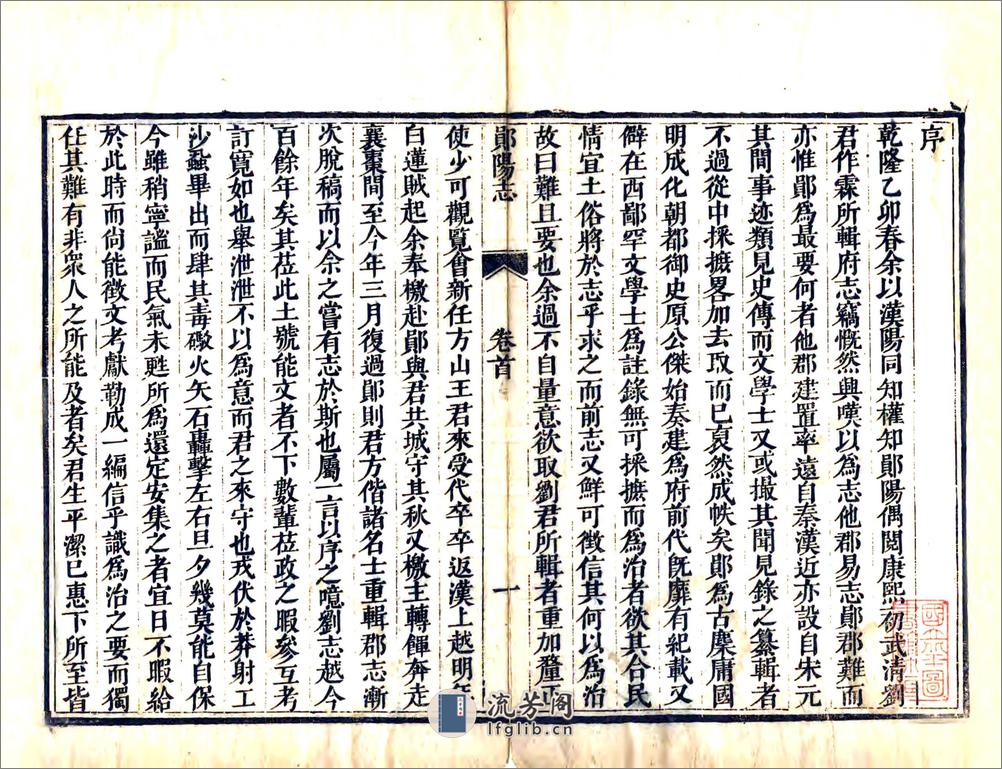 序
乾隆乙卯春余以漢陽同知權知鄖陽偶閱康熙初武清劉
君作霖所輯府志竊慨然興嘆以為志他郡易志鄖郡難而
亦惟鄖為最要何者他郡建置率遠自秦漢近亦設自朱元
其間事迹類見史傳而文學士又或撮其聞見錄之纂輯者
不過從中採摭畧加去取而已裒然成帙矣鄖為古麇庸國
明成化朝都御史原公傑始奏建為府前代旣靡有紀載又
僻在西鄙罕文學士為註錄無可採摭而為治者欲其合民
情宜土俗將於志乎求之而前志又鮮可徵信其何以為治
故曰難且要也余過不自量意欲取劉君所輯者重加釐正
鄖陽志
卷首
一
使少可觀覽會新任方山王君來受代卒卒返漢上越明年
白蓮賊起余奉檄赴鄖與君共城守其秋又檄主轉餫奔走
襄棗間至今年三月復過鄖則君方偕諸名士重輯郡志漸
次脫稿而以余之嘗有志於斯也屬一言以序之噫劉志越今
百餘年矣其莅此土號能文者不下數輩莅政之暇參互考
訂寛如也舉泄泄不以為意而君之來守也戎伏於莽射工
沙蝨畢出而肆其毒礮火矢石轟擊左右旦夕幾莫能自保
今雖稍寧謐而民氣未甦所為還定安集之者宜日不暇給
於此時而尙能徵文考獻勒成一編信乎識為治之要而獨
任其難有非衆人之所能及者矣君生平潔已惠下所至皆
流芳阁
lfglib.cn